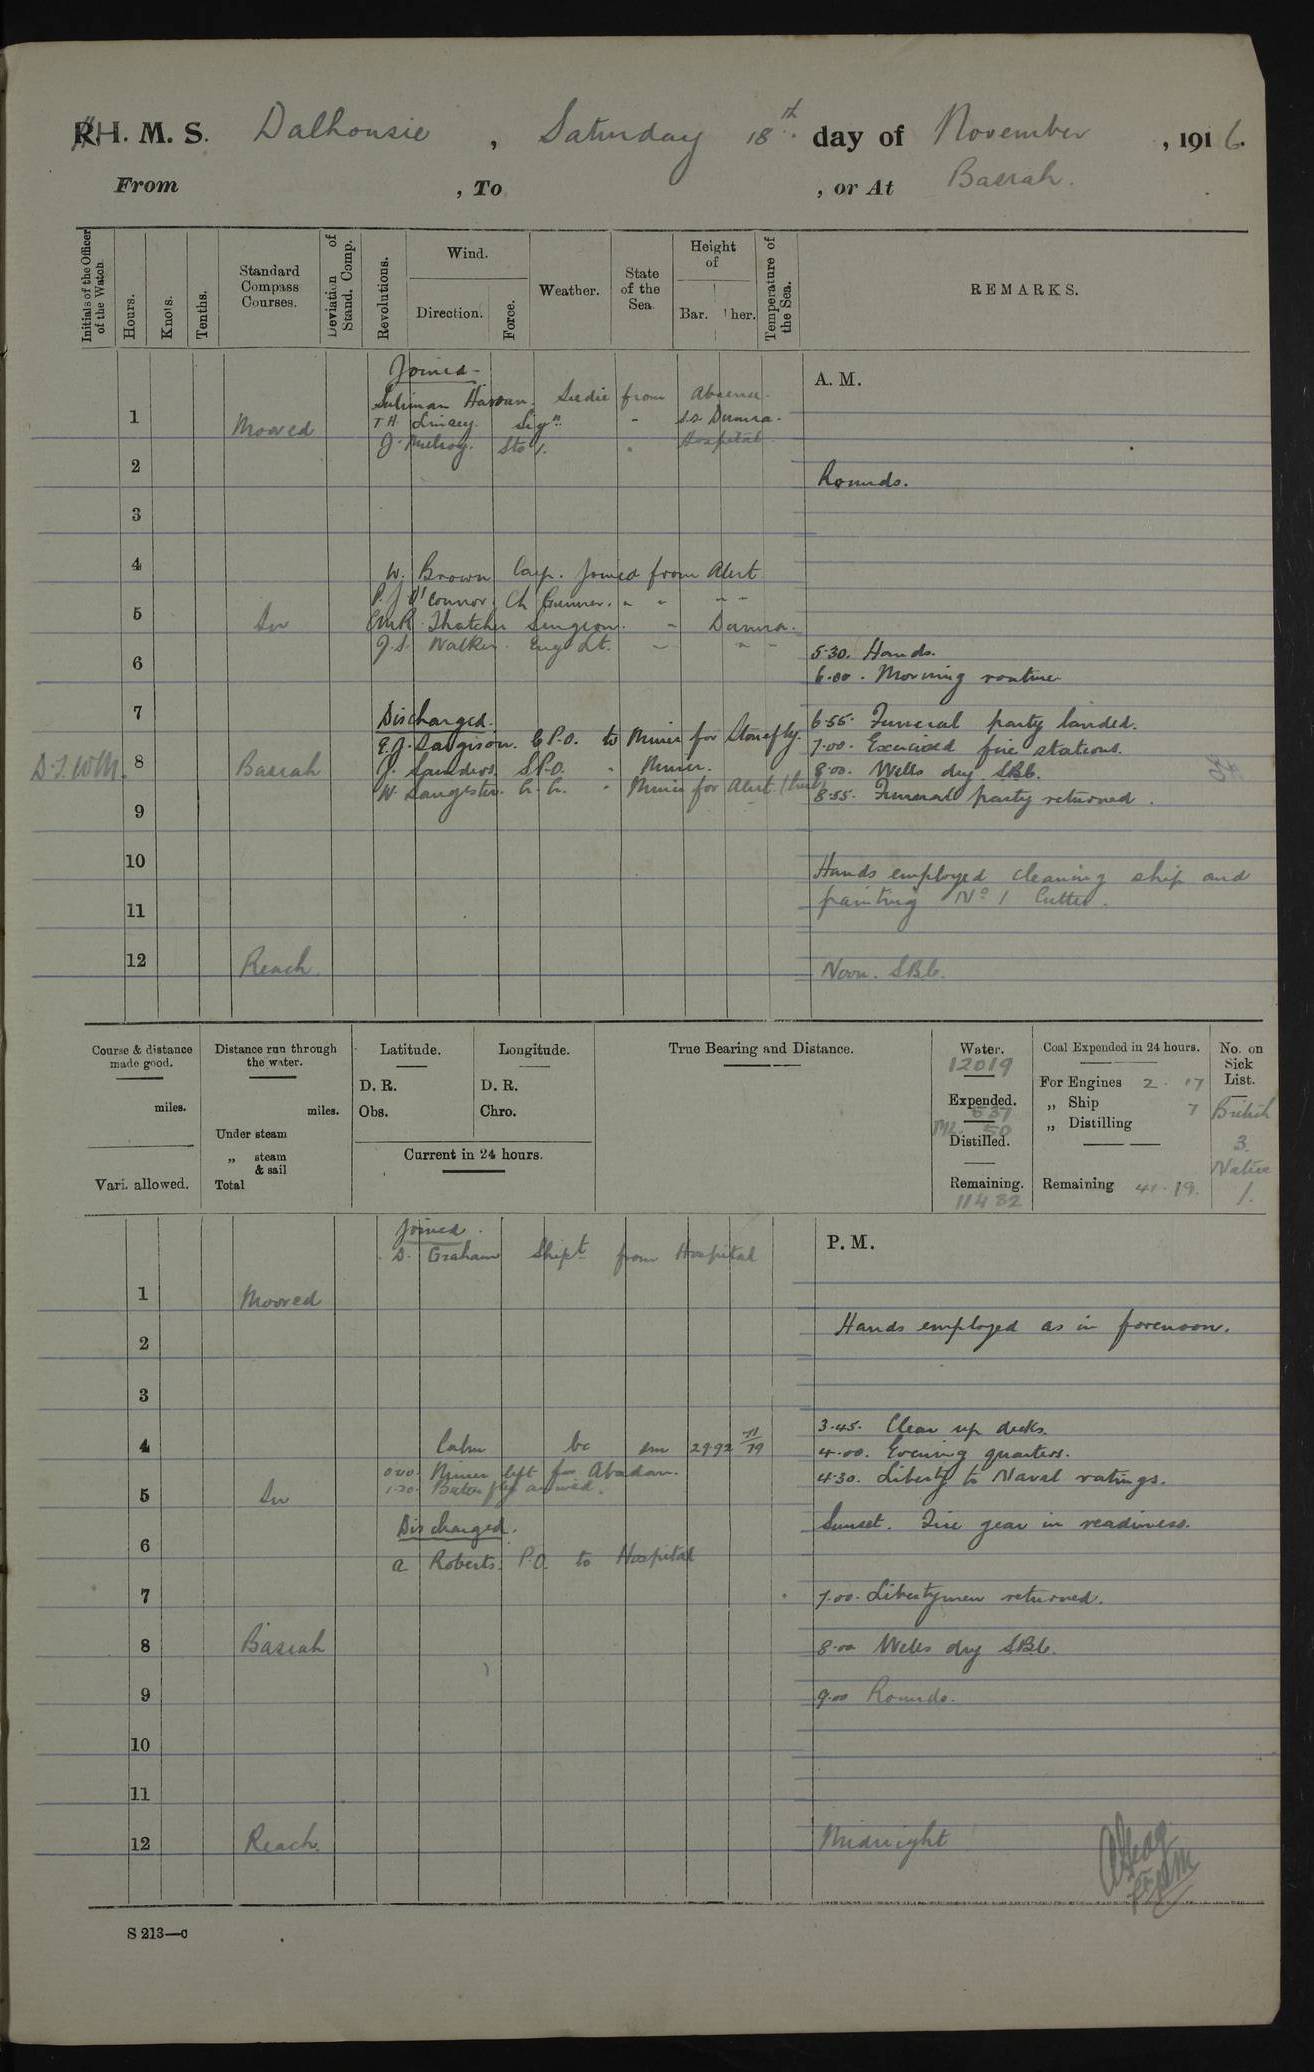 H. M. S. Dalhousie, Saturday 18th day of November, 1916.
From , To , or At Basrah.
Initials of the Officer of the Watch.
Hours.
Knots.
Tenths.
Standard Compass Courses.
Deviation of Stand. Comp.
Revolutions.
Wind.
Direction.
Force.
Weather.
State of the Sea.
Height of
Bar.
Ther.
Temperature of the Sea.
REMARKS.
Joined -
A. M.
Suliman Hassan. Seedie from Absence.
1 Moored
T H Linsey. Sign. - s.s Dumra.
J. Sto 1. " Hospital
2 Rounds.
3
4
W. Brown Carp. Joined from Alert
P. J O'Connor. Ch Gunner. " " " "
5 In
Thatcher Surgeon. " Dumra.
J. S. Walker. Eng Lt. " " "
5.30. Hands.
6
6.00. Morning routine
7
Discharged.
6.55. Funeral party landed.
E. J. Sargison. C P.O. to Miner for Stonefly.
7.00. Exercised fire stations.
8 Basrah
J. Saunders. S.P.O. " Miner.
8.00. Wells dry. SBC.
W. Sangster. " Miner for Alert
8.55. Funeral party returned.
9
10 Hands employed cleaning ship and
11 painting No 1 Cutter.
12 Reach. Noon. SBC.
Course & distance made good.
miles.
Vari. allowed.
Distance run through the water.
miles.
Under steam
„ steam & sail
Total
Latitude.
D. R.
Obs.
Longitude.
D. R.
Chro.
Current in 24 hours.
True Bearing and Distance.
Water.
12019
Expended.
537
50
Distilled.
Remaining.
11482
Coal Expended in 24 hours.
For Engines 2. 17
„ Ship 7
„ Distilling
Remaining 41. 19.
No. on Sick List.
British
3.
Native
1.
Joined.
P. M.
D. Graham Shipt from Hospital
1 Moored
Hands employed as in forenoon.
2
3
3.45. Clear up decks.
4 Calm bc sm 29.92 71/79
4.00. Evening quarters.
Miner left for Abadan.
4.30. Liberty to Naval ratings.
5 In
1.20. Butterfly arrived.
Discharged.
Sunset. Fire gear in readiness.
6
A Roberts. P.O. to Hospital
7 7.00. Libertymen returned.
8 Basrah 8.00 Wells dry SBC.
9 9.00 Rounds.
10
11
12 Reach. Midnight
S 213—c